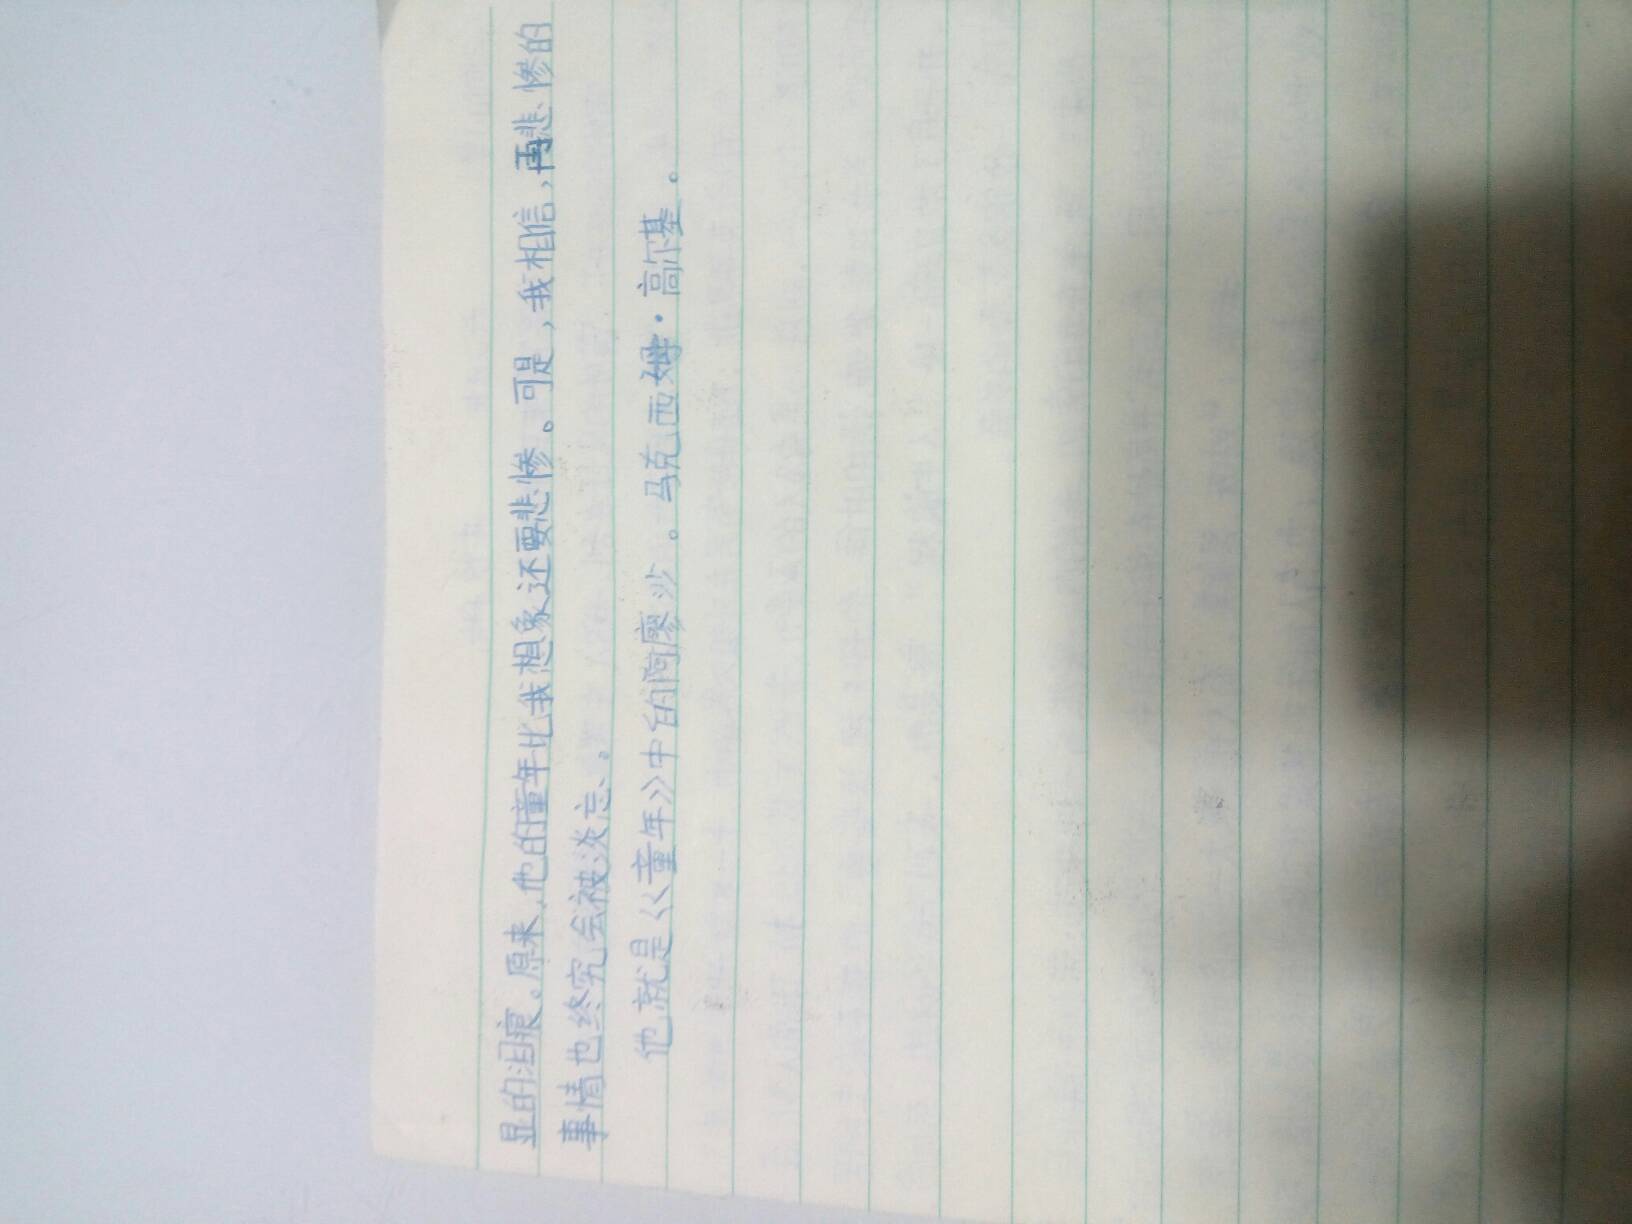 显的泪痕。原来,他的童年比我想象还要悲惨。可是,我相信,再悲惨的
事情也终究会被淡忘。
他就是《童年》中的阿廖沙。马克西姆·高尔基。